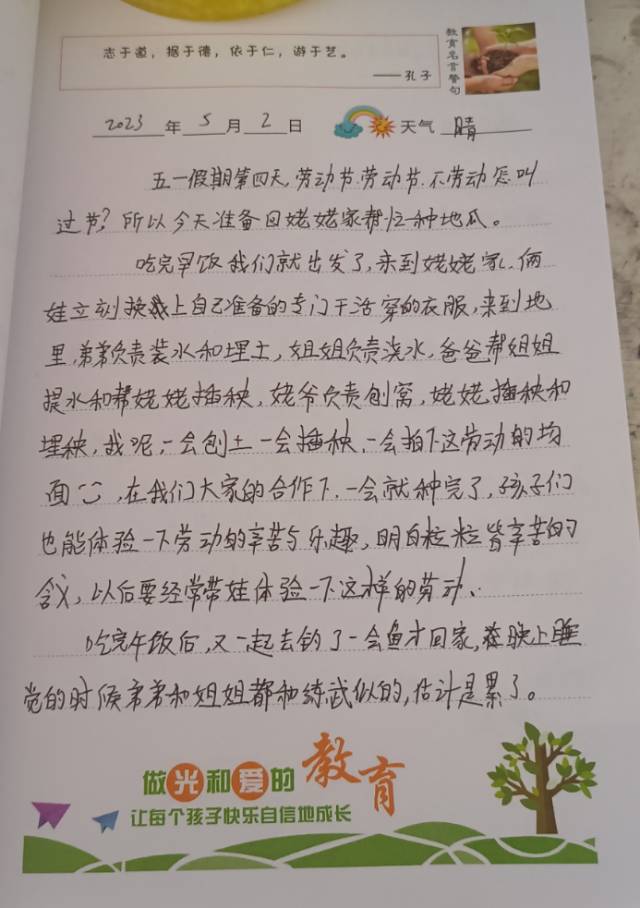 志于道，据于德，依于仁，游于艺。
——孔子
教育名言警句
2023年5月2日 天气 晴
五一假期第四天，劳动节.劳动节.不劳动怎叫
过节？所以今天准备回姥姥家帮忙种地瓜。
吃完早饭我们就出发了，来到姥姥家、俩
娃立刻换上自己准备的专门干活穿的衣服，来到地
里，弟弟负责装水和埋土，姐姐负责浇水，爸爸帮姐姐
提水和帮姥姥插秧，姥爷负责刨窝，姥姥插秧和
埋秧，我呢，一会刨土一会插秧.一会拍下这劳动的场
面，在我们大家的合作下.一会就种完了，孩子们
也能体验一下劳动的辛苦与乐趣，明白粒粒皆辛苦的
含义，以后要经常带娃体验一下这样的劳动、
吃完午饭后，又一起去钓了一会鱼才回家，在晚上睡
觉的时候弟弟和姐姐都和练武似的，估计是累了。
做光和爱的教育
让每个孩子快乐自信地成长